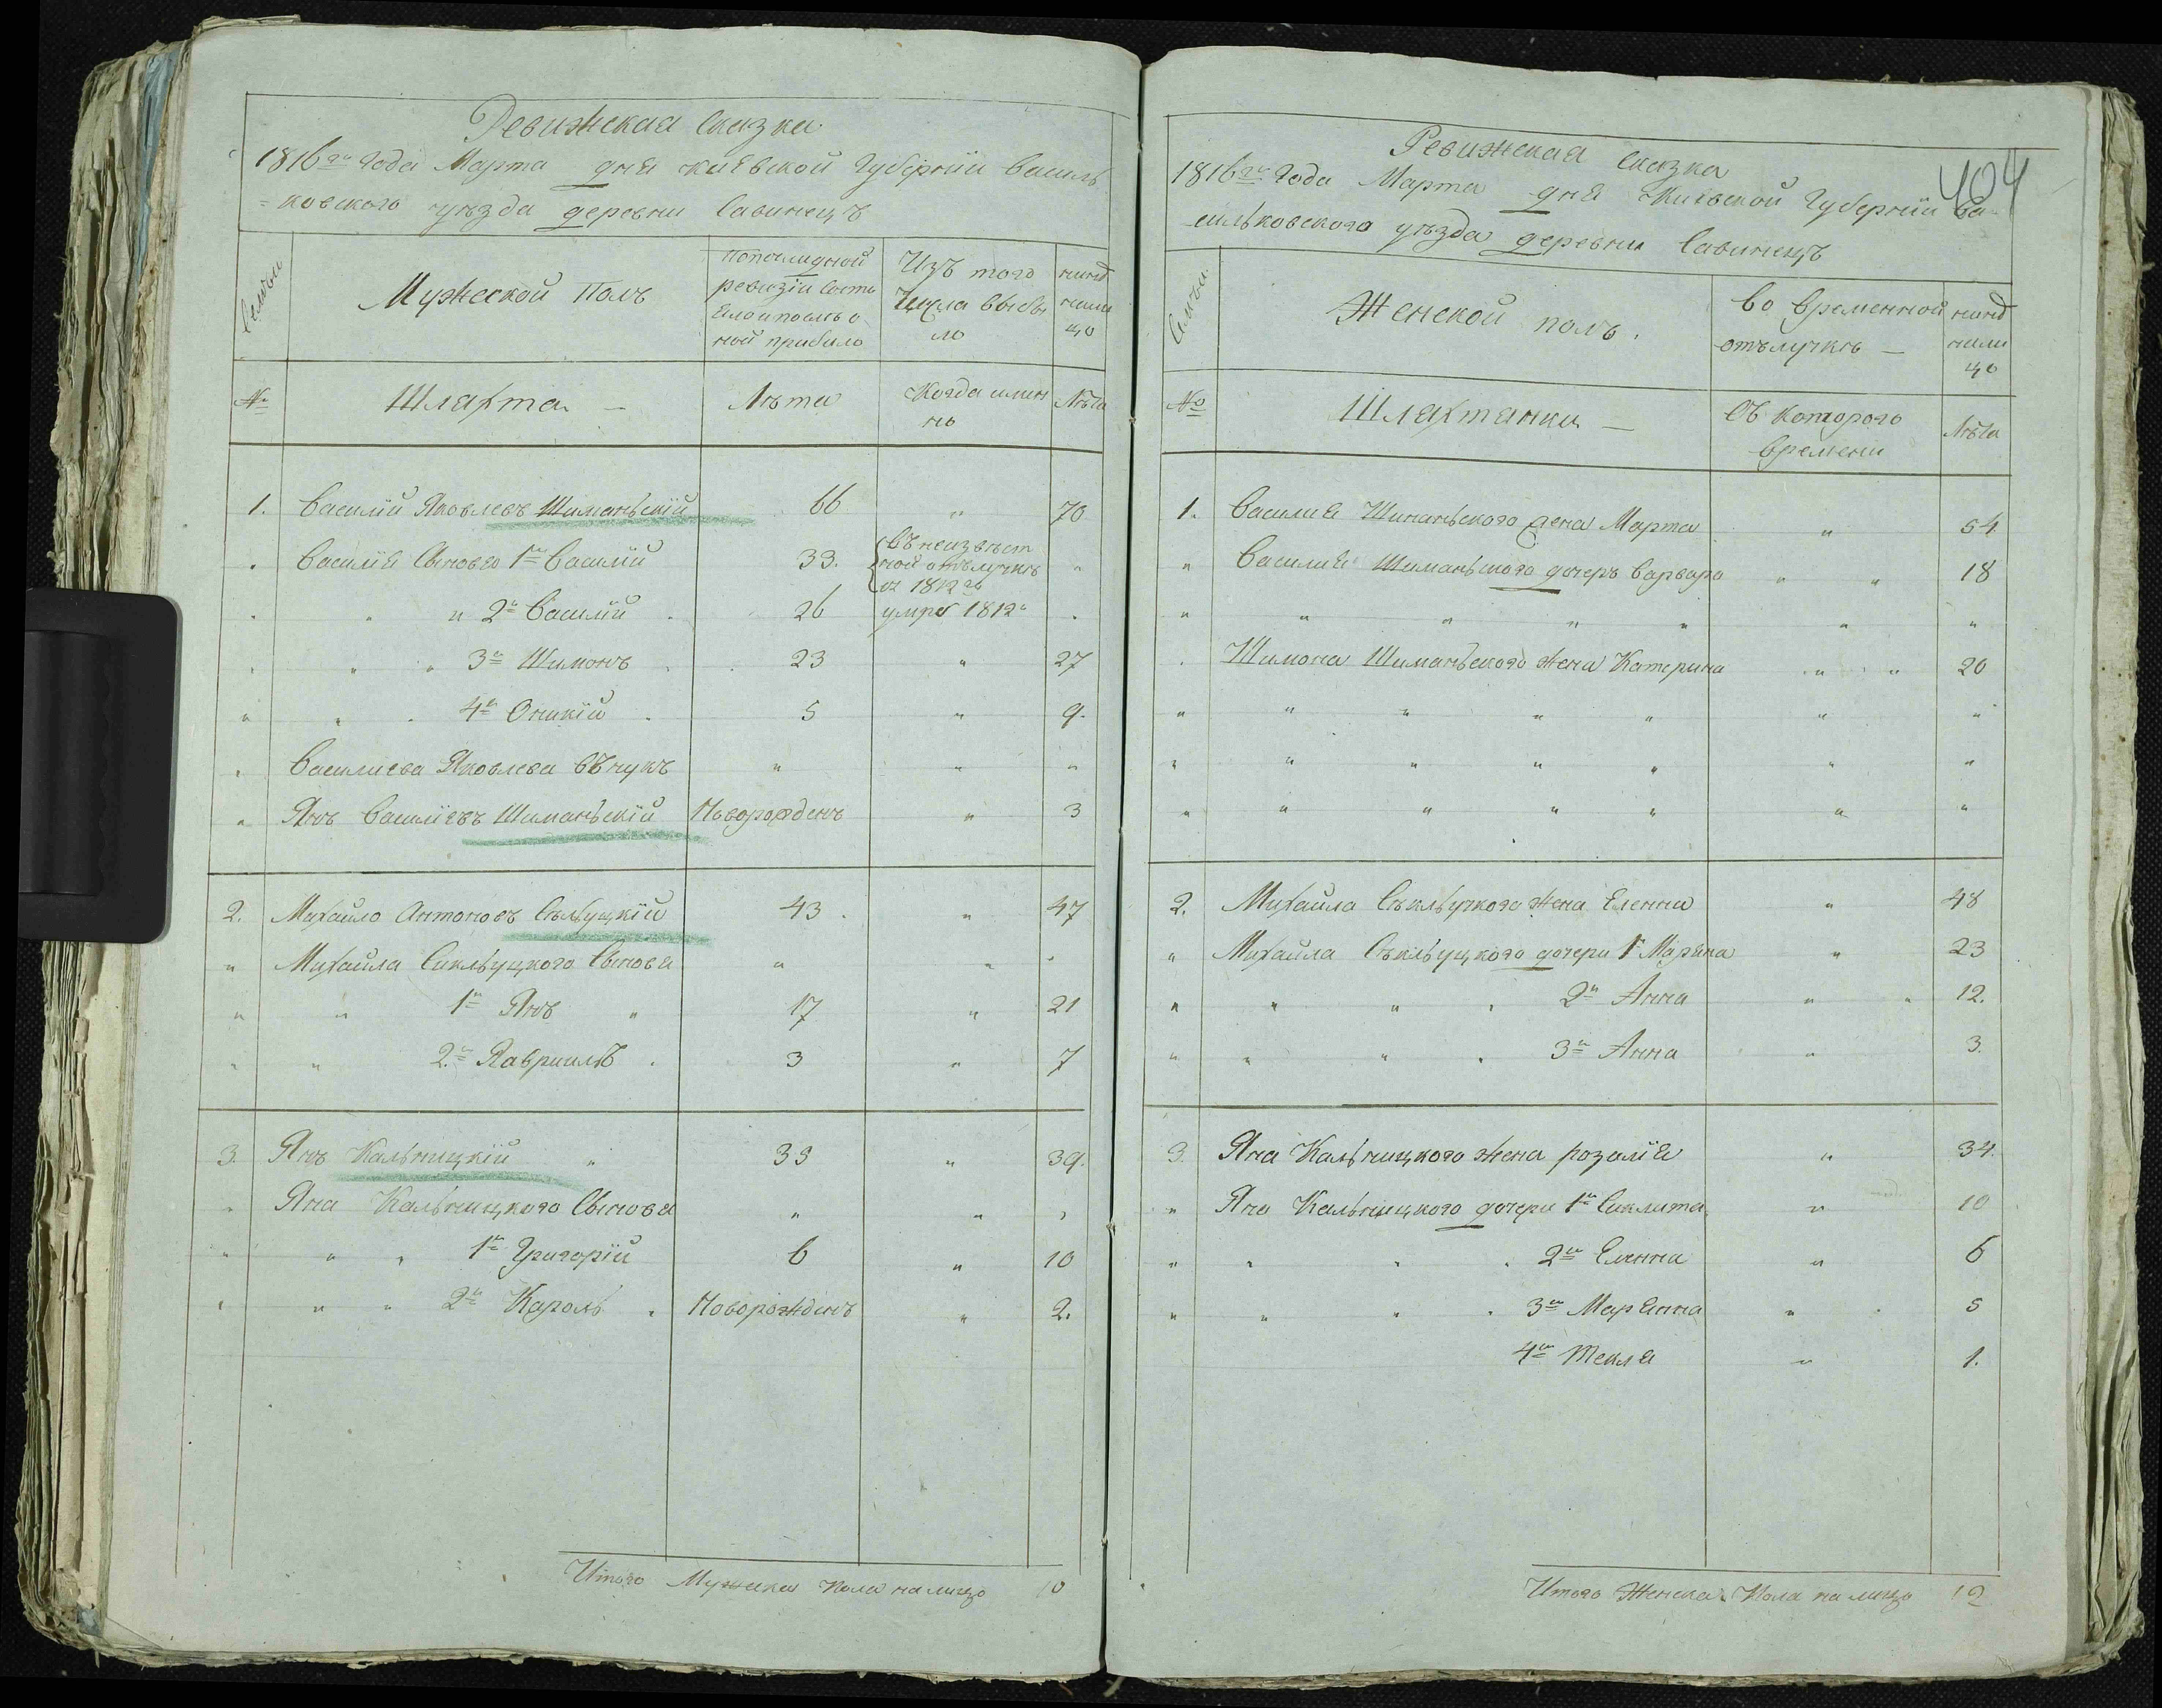 Ревижская Сказка
1816го Года Марта дня Киевской Губернїи Василь
=ковского уезда деревни Савинецъ
Семьи
Мужеской Полъ
По последной
ревизїи состо
яло и после о
ной прибыло
Изъ того
числа выбы
ло
ныне
нали
цо
№
Шляхта —
Лѣта
Когда имен
но
Лѣта
1. Василїй Яковлевъ Шиманьскїй 66 " 70
" Василїя Сыновя 1й Василїй 33. Въ неизвест
ной отълучкѣ
съ 1812го "
" " " 2й Василїй 26 умре 1812 "
" " " 3й Шимонъ 23 " 27
" " " 4й Оникїй 5 " 9.
" Василиева Яковлева внукъ " " "
" Янъ Василїевъ Шиманьскїй Новорожденъ " 3
2. Михайло Антоновъ Секлуцкїй 43. " 47
" Михайла Сикльуцкого Сыновя " " "
" " 1й Янъ " 17 " 21
" " 2й Гавриилъ 3 " 7
3. Янъ Кальницкїй " 35 " 39.
" Яна Кальницкого Сыновя " " "
" " " 1й Григорїй 6 " 10
" " " 2й Кароль Новорожденъ " 2.
Итого Мужска Пола на лицо 10
404
Ревижская Сказка
1816го Года Марта дня Киевской Губернїи Ва=
сильковского уезда деревни Савинецъ
Семьи
Женской полъ.
Во временной
отълучкѣ —
ныне
нали
цо
№
Шляхтянки —
Съ которого
времени
Лѣта
1. Василия Шиманьского жена Марта " 54
" Василия Шиманьского дочеръ Варвара " " 18
" " " " " " "
" Шимона Шиманьского жена Катерина " " 20
" " " " " " "
" " " " " " "
" " " " " " "
2. Михайла Сѣкльучкого жена Еленна " 48
" Михайла Сѣкльуцкого дочери 1я Марина " 23
" " " " 2я Анна " " 12.
" " " " 3я Анна " 3.
3. Яна Кальницкого жена розалїя " 34.
" Яна Кальницкого дочери 1я Саклита " 10
" " " " 2я Еленна " 6
" " " " 3я Марянна " 5
4я Текля " 1.
Итого Женска Пола на лицо 12